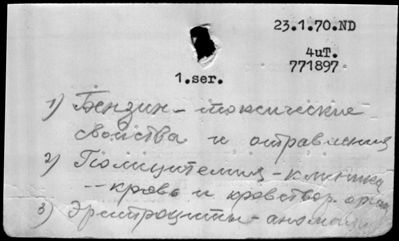 23.1.70.ND
4чт.
771897
1.ser.
1) Бензин - токсические
свойства и отравления
2) Полицитемия - клиника
-- кровь и кровотвор. орга
3) Эритроциты - аномали